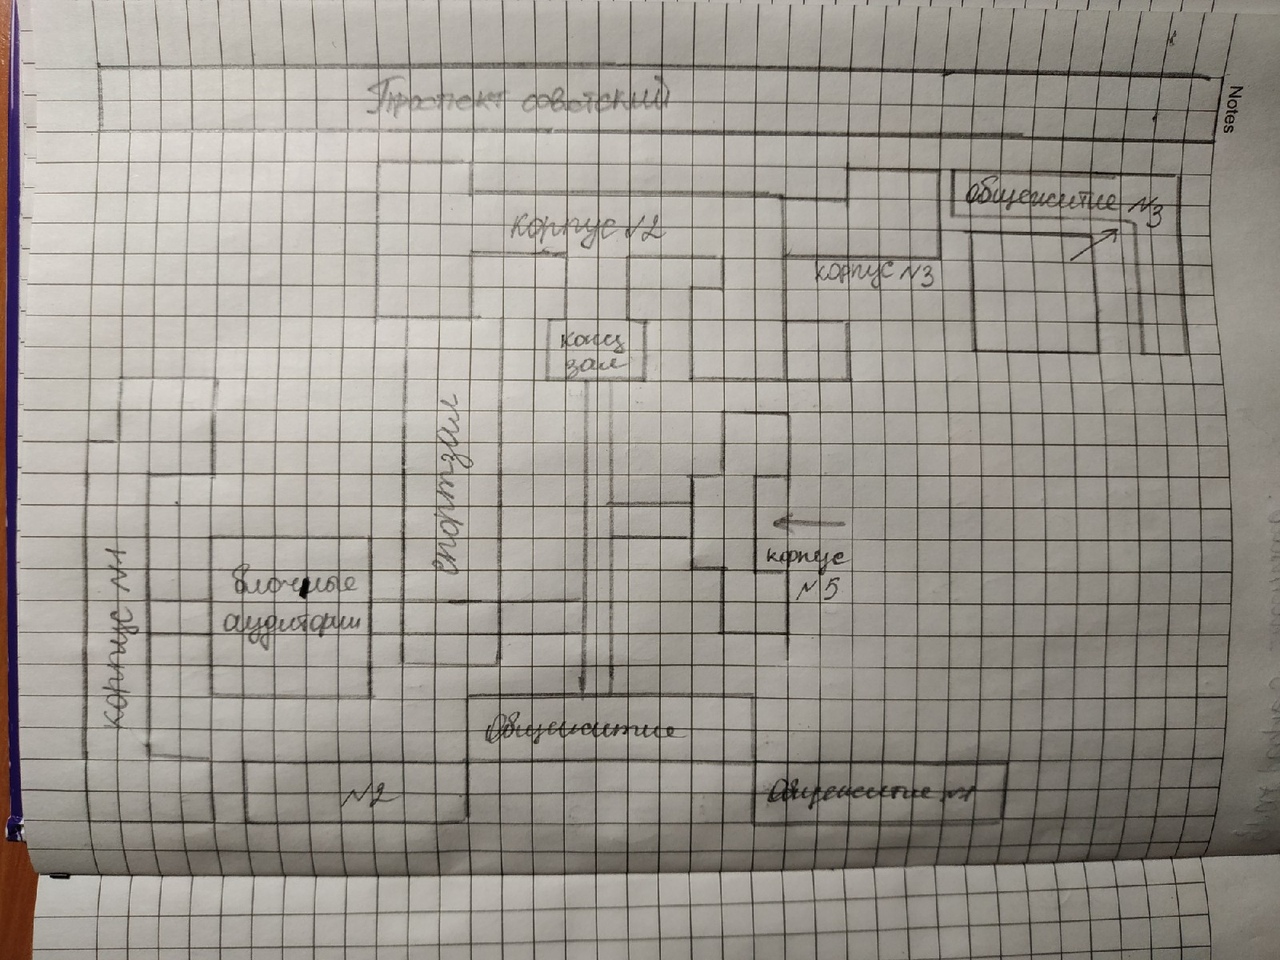 Проспект советский
Notes
корпус №2
Общежитие №3
корпус №3
конц
зал
спортзал
корпус №5
Блочные
аудитории
корпус №1
Общежитие
№2
Общежитие №1